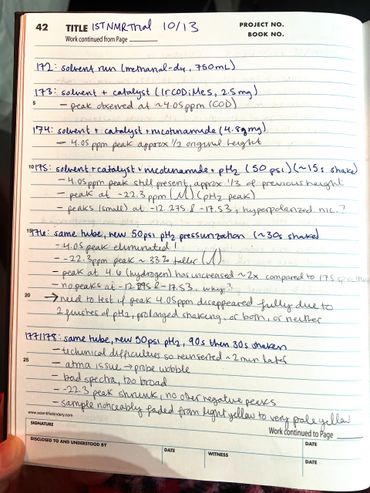 42 TITLE 1ST NMR Trial 10/13 PROJECT NO.
Work continued from Page BOOK NO.
172: solvent run (methanol-d4, 750mL)
173: solvent + catalyst (IrCODIMes, 2.5mg)
5
- peak observed at ~4.05ppm (COD)
174: solvent + catalyst + nicotinamide (4.8mg)
- 4.05 ppm peak approx 1/2 original height
10 175: solvent + catalyst + nicotinamide + pH2 (50 psi) (~15s shake)
- 4.05 ppm peak still present, approx 1/3 of previous height
- peak at -22.3 ppm (pH2 peak)
- peaks (small) at -12.275 & -17.53, hyperpolarized nic.?
15 176: same tube, new 50psi pH2 pressurization (~30s shake)
- 4.05 peak eliminated!
- -22.3ppm peak ~33% taller
- peak at 4.6 (hydrogen) has increased ~2x compared to 175
- no peaks at & -17.53. why?
20 → need to test if peak 4.05ppm disappeared fully due to
2 flushes of pH2, prolonged shaking, or both, or neither
177/178: same tube, new 50psi pH2, 90s then 30s shaken
- technical difficulties so reinserted ~2min later
25
- atma issue → probe wobble
- bad spectra, too broad
- -22.3 peak shrunk, no other negative peaks
- sample noticeably faded from light yellow to very pale yellow
www.scientificbindery.com Work continued to Page
SIGNATURE DATE
DISCLOSED TO AND UNDERSTOOD BY DATE WITNESS DATE